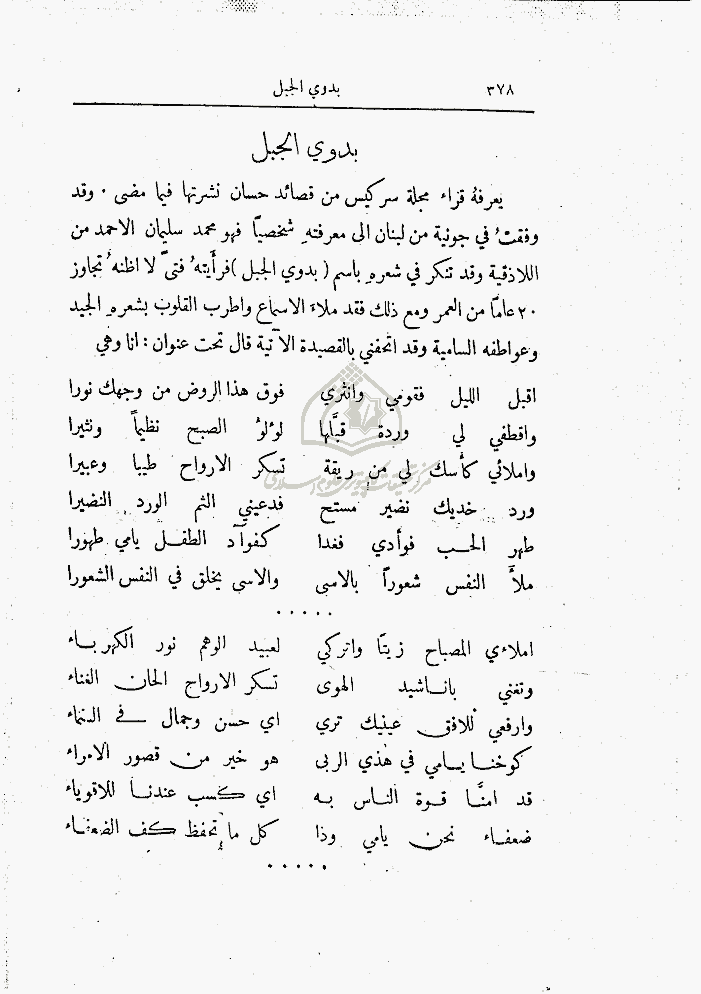 ٣٧٨ بدوي الجبل
بدوي الجبل
يعرفهُ قراء مجلة سركيس من قصائد حسان نشرتها فيما مضى ٠ وقد
وفقتُ في جونية من لبنان الى معرفتهِ شخصياً فهو محمد سليمان الاحمد من
اللاذقية وقد تنكر في شعرهِ باسم ( بدوي الجبل ) فرأيتهُ فتىً لا اظنهُ تجاوز
٢٠ عاماً من العمر ومع ذلك فقد ملاءَ الاسماع واطرب القلوب بشعرهِ الجيد
وعواطفه السامية وقد اتحفني بالقصيدة الآتية قال تحت عنوان : انا وهي
اقبل الليل فقومي وانثري فوق هذا الروض من وجهك نورا
واقطفي لي وردة قبَّلها لؤلؤُ الصبح نظيماً ونثيرا
واملائي كأسك لي من ريقة تسكر الارواح طيبا وعبيرا
ورد خديك نضير مستح فدعيني الثم الورد النضيرا
طهر الحب فوأدي فغدا كفوآد الطفل يامي طهورا
ملأَ النفس شعوراً بالاسى والاسى يخلق في النفس الشعورا
٠ ٠ ٠ ٠ ٠
املاءي المصباح زيتاً واتركي لعبيد الوهم نور الكهرباء
وتغني باناشيد الهوى تسكر الارواح الحان الغناء
وارفعي للافق عينيك تري اي حسن وجمال في السماء
كوخنا يامي في هذي الربى هو خير من قصور الامراء
قد امنَّا قوة الناس به اي كسب عندنا للاقوياء
ضعفاء نحن يامي وذا كل ما تحفظ كف الضعفاء
٠ ٠ ٠ ٠ ٠